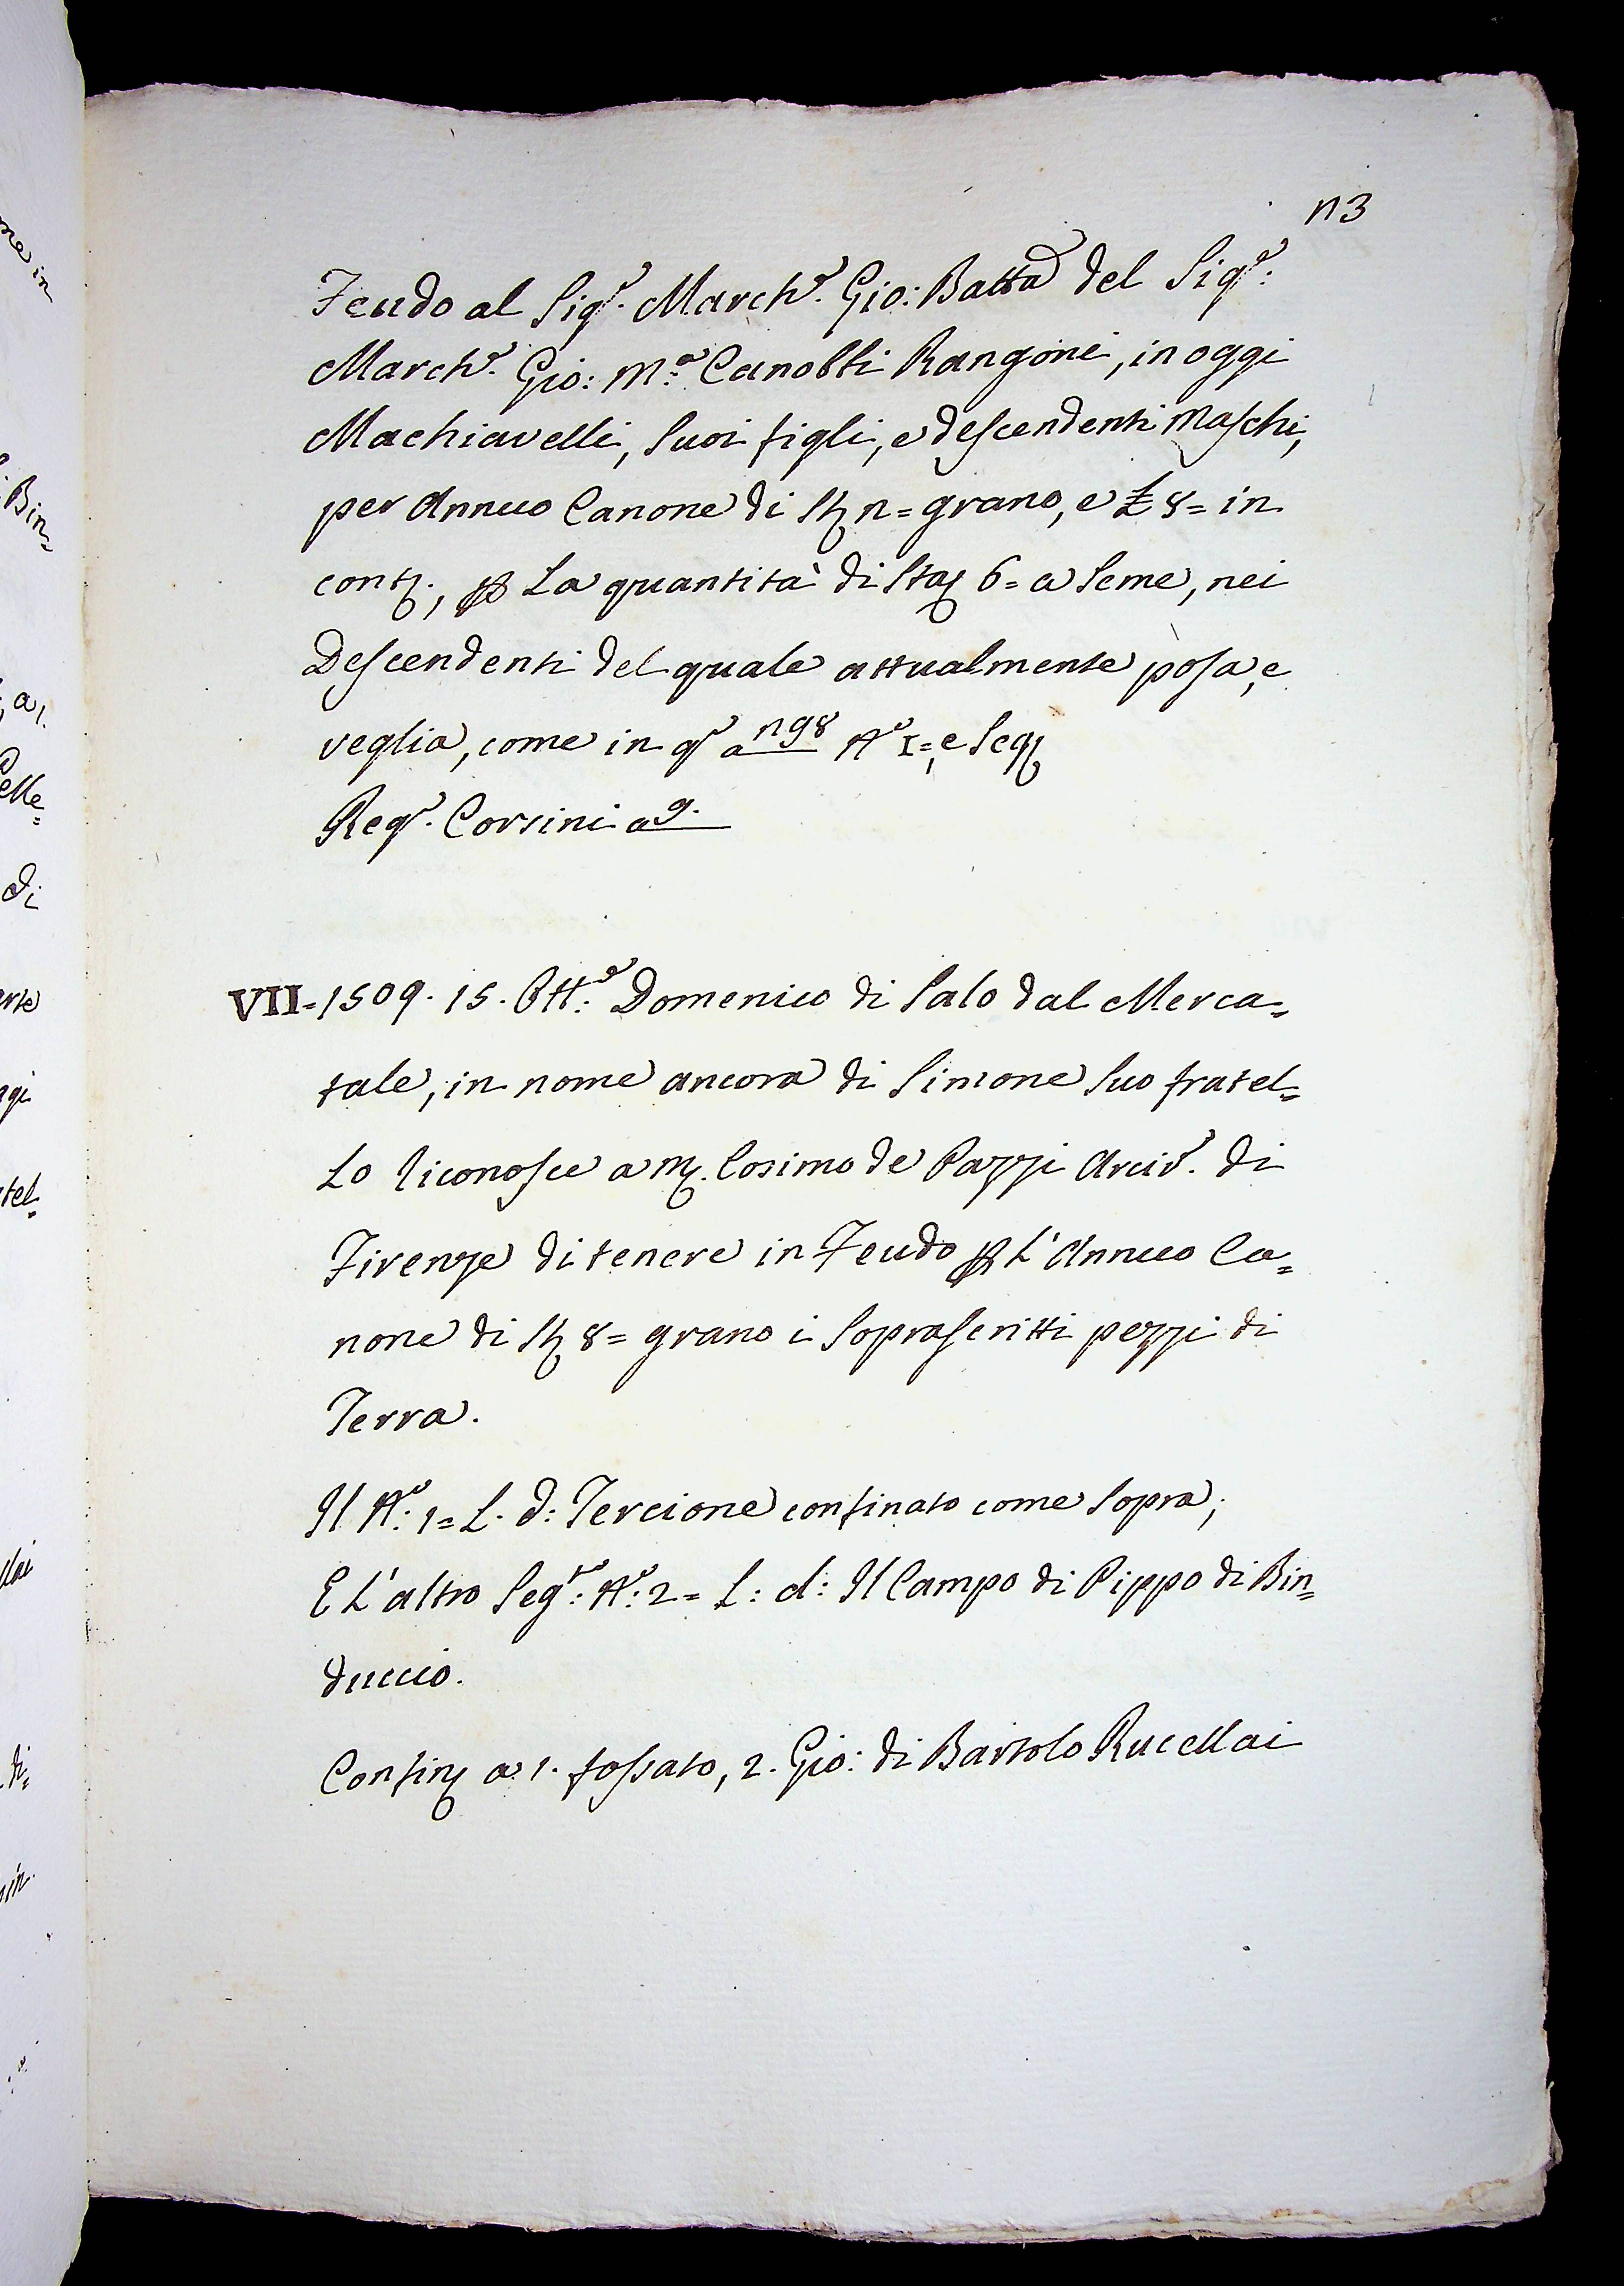 113
Feudo al Sig.r March.e Gio: Batta del Sig.r:
March.e Gio: M.a Canobbi Rangoni, in oggi
Machiavelli, Suoi figli, e descendenti Maschi,
per Annuo Canone di St. 11= grano, e £ 8= in
cont., p La quantità di Sta. 6= a Seme, nei
Descendenti del quale attualmente posa, e
veglia, come in q.o a 118 N.o I=, e Seq.
Reg.o Corsini a 9.
VII=1509. 15. Ott.e: Domenico di Salo dal Merca=
tale, in nome ancora di Simone Suo fratel=
Lo riconosce a M. Cosimo de Pazzi Arciv.o di
Firenze di tenere in Feudo p L'Annuo Ca=
none di St. 8= grano i Soprascritti pezzi di
Terra.
Il N.o: 1= L. d: Tercione confinato come Sopra;
E L'altro Seg.te: N.o: 2= L: d: Il Campo di Pippo di Bin=
duccio.
Confin. a 1. fossato, 2. Gio: di Bartolo Rucellai
me in
Bin=
a 1.
elle=
di
tel=